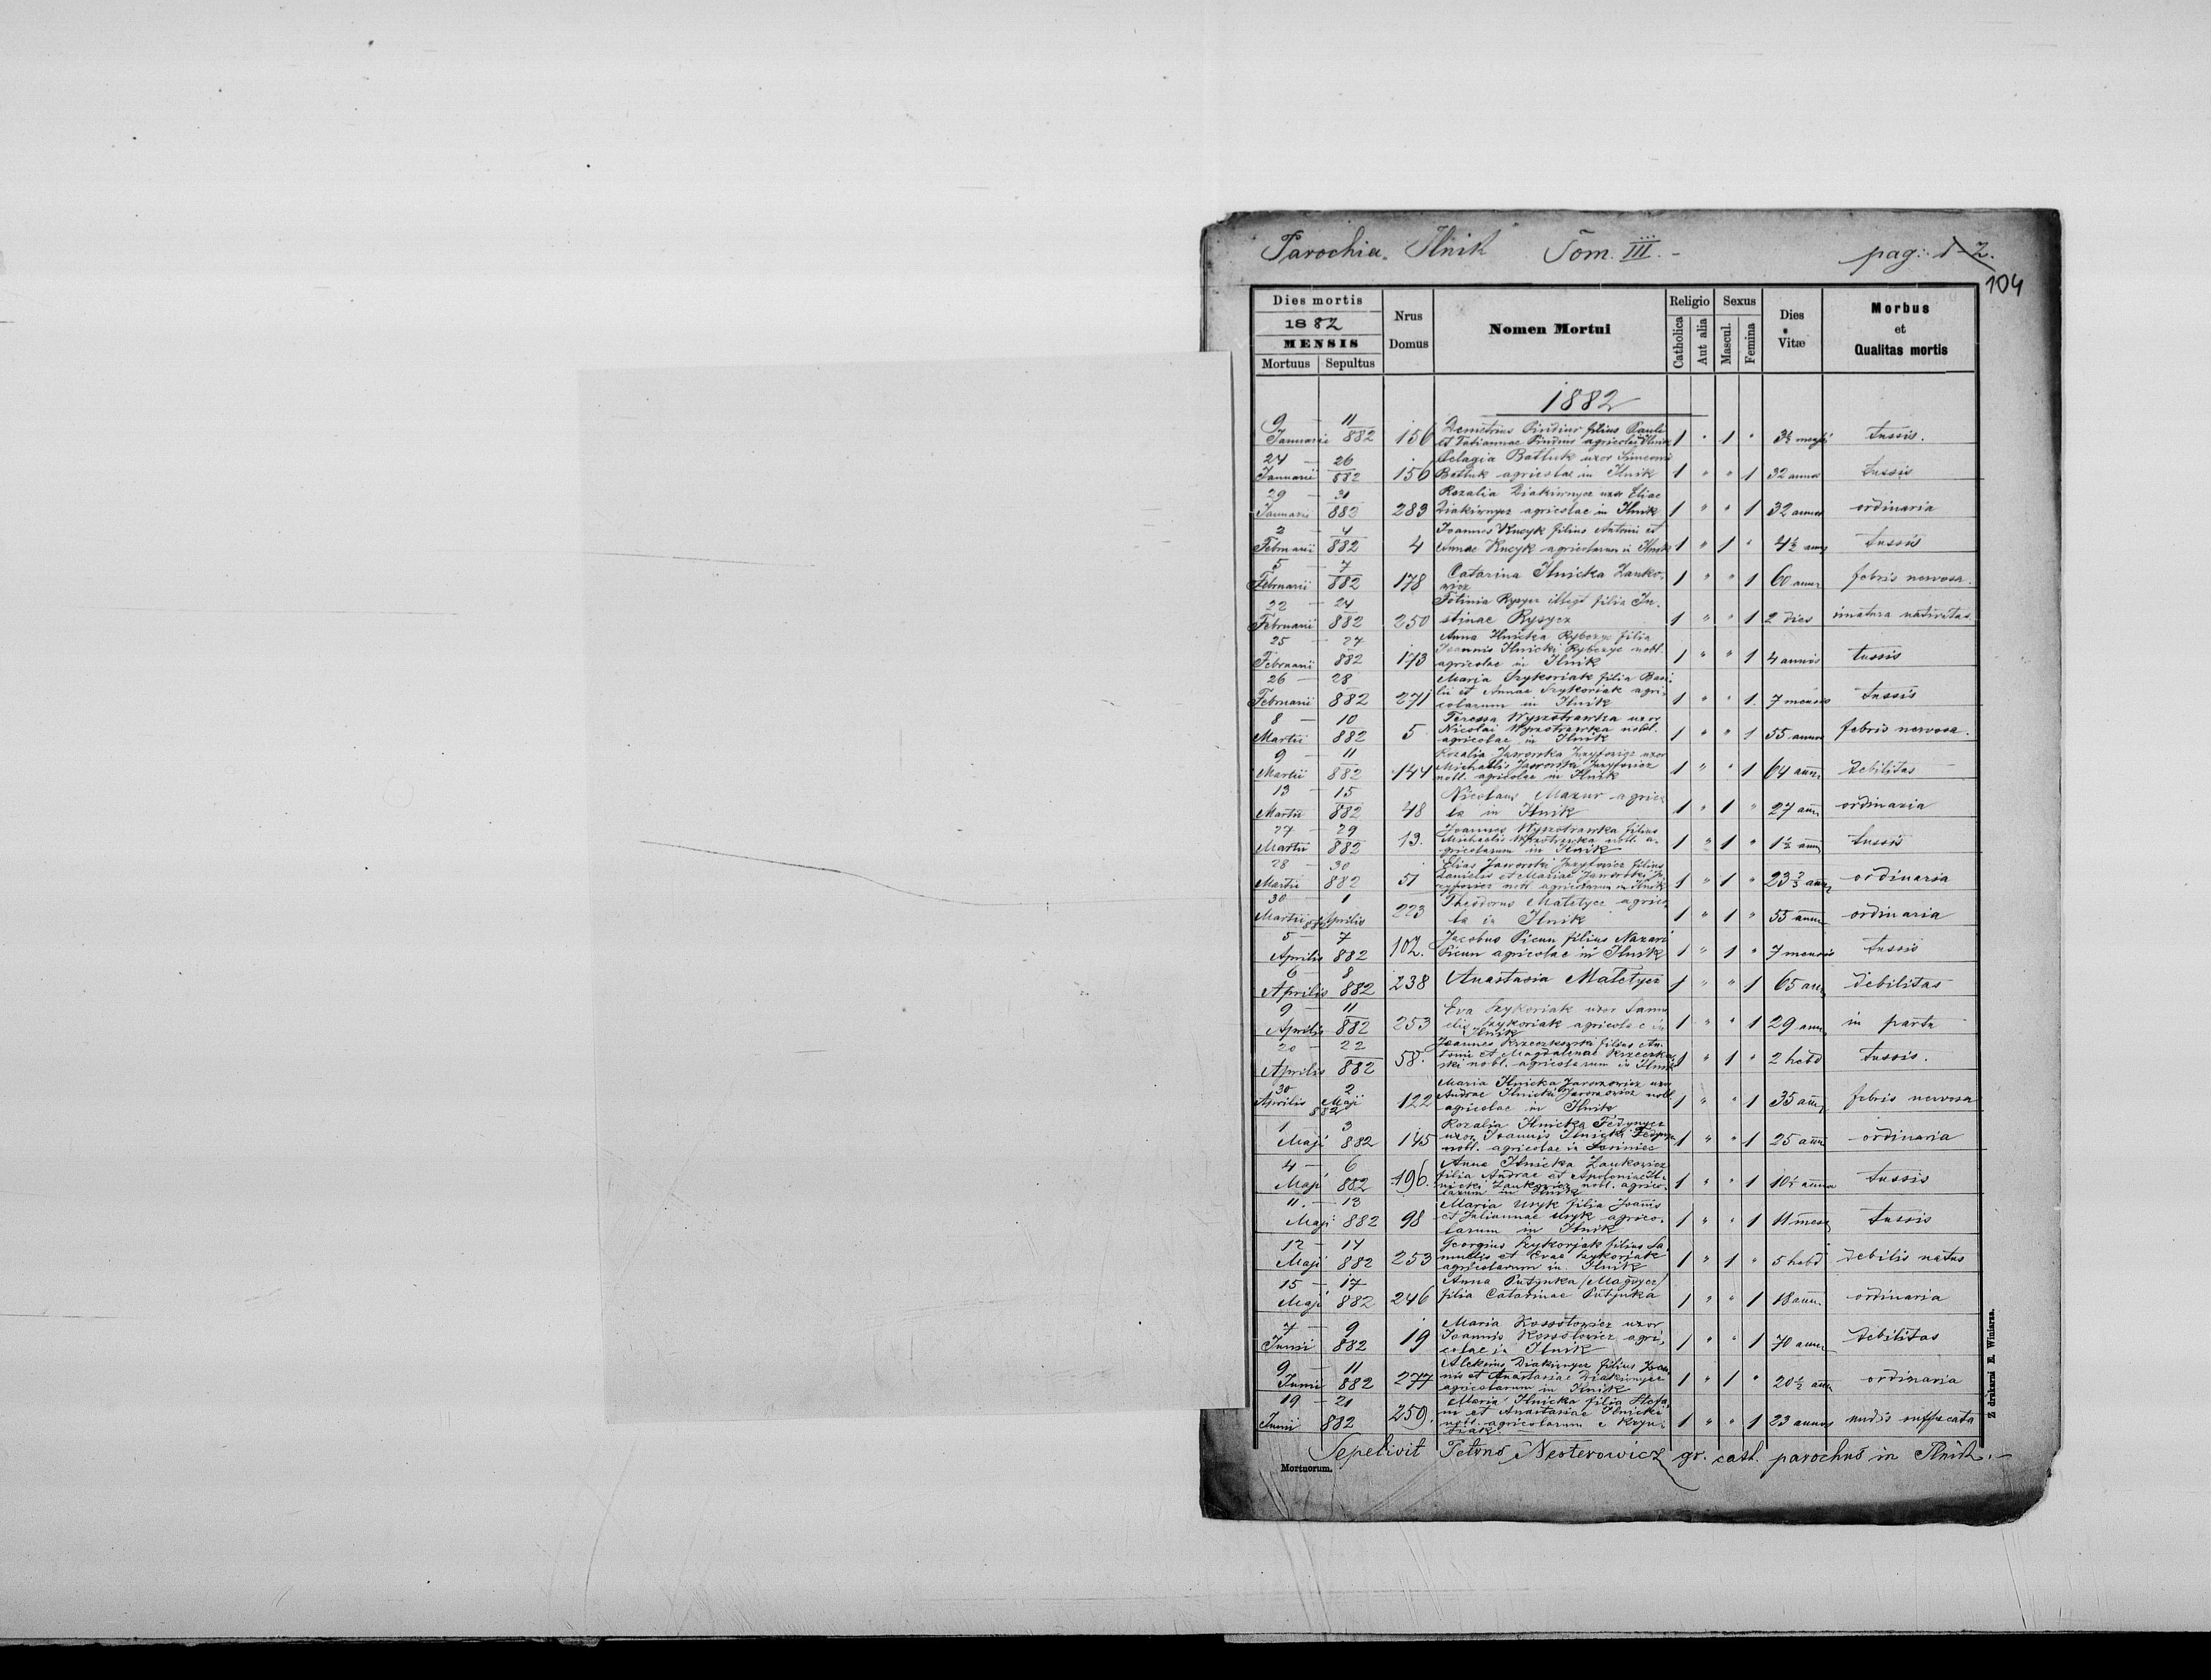 Parochia Ilnik Tom. III. - pag: 1-2.
104
Dies mortis
1882
MENSIS
Mortuus Sepultus
Nrus Domus
Nomen Mortui
Religio
Catholica Aut alia
Sexus
Mascul. Femina
Dies Vitæ
Morbus
et
Qualitas mortis
1882
9 — 11 Demetrius filius Pauli
Januarii 882 156 et Tatiannae agricolae Ilnik 1 " 1 " 3½ tussis.
24 — 26 Pelagia Batluk uxor Simeonis
Januarii 882 156 Batluk agricolae in Ilnik 1 " " 1 32 annor tussis
29 — 31 Rozalia Diakiwnycz uxor Eliae
Januarii 882 283 Diakiwnycz agricolae in Ilnik 1 " " 1 32 annor ordinaria
2 — 4 Joannes Kucyk filius Antonii et
Februarii 882 4 Annae Kucyk agricolarum in Ilnik 1 " 1 " 4½ ann tussis
5 — 7 Catarina Ilnicka Zanko-
Februarii 882 178 wicz 1 " " 1 60 annor febris nervosa.
22 — 24 Fotinia Rysycz illegt filia Ju-
Februarii 882 250 stinae Rysycz 1 " " 1 2 dies imatura nativitas
25 — 27 Anna Ilnicka Rybczyc filia
Joannis Ilnicki Rybczyc nobl.
Februarii 882 173 agricolae in Ilnik 1 " " 1 4 annis tussis
26 — 28 Maria Szykoriak filia Basi-
lii et Annae Szykoriak agri-
Februarii 882 271 colarum in Ilnik 1 " " 1. 7 mensis tussis
8 — 10 Teressa Wysotrawka uxor
Nicolai Wysotrawka nobl.
Martii 882 5 agricolae in Ilnik 1 " " 1 55 annor febris nervosa.
9 — 11 Rozalia Jaworska Juzyfowicz uxor
Michaelis Jaworski Juzyfowicz
Martii 882 144 nobl. agricolae in Ilnik 1 " " 1 64 annor debilitas
13 — 15 Nicolaus Mazur agrico-
Martii 882 48 la in Ilnik 1 " 1 " 27 ann ordinaria
27 — 29 Joannes Wysotrawka filius
Michaelis Wysotrawka nobl. a-
Martii 882 13. gricolarum in Ilnik 1 " 1 " 1½ ann tussis
28 — 30 Elias Jaworski Juzyfowicz filius
Danielis et Mariae Jaworski Ju-
Martii 882 51 zyfowicz nobl. agricolarum in Ilnik 1 " 1 " 23 ann ordinaria
30 — 1 Theodorus Maletycz agrico-
Martii 882 Aprilis 223 la in Ilnik 1 " 1 " 55 annor ordinaria
5 — 7 Jacobus Picun filius Nazari
Aprilis 882 102. Picun agricolae in Ilnik 1 " 1 " 7 mensis tussis
6 — 8
Aprilis 882 238 Anastasia Maletycz 1 " " 1 65 ann debilitas
9 — 11 Eva Szykoriak uxor Samu-
Aprilis 882 253 elis Szykoriak agricolae in 1 " " 1 29 ann in partu
Ilnik
20 — 22 Joannes Krzeczkowski filius An-
tonii et Magdalenae Krzeczkow-
Aprilis 882 58. ski nobl. agricolarum in Ilnik 1 " 1 " 2 hebd tussis.
30 2 Maria Ilnicka Jarozowicz uxor
Aprilis Maji 122 Andrae Ilnicki Jarozowicz nobl 1 " " 1 35 ann febris nervosa
882 agricolae in Ilnik
1 — 3 Rozalia Ilnicka Fedynycz
Maji 882 145 uxor Joannis Ilnicki Fedynycz 1 " " 1 25 ann ordinaria
nobl. agricolae in
4 — 6 Anna Ilnicka Zankowicz
filia Andrae et Apoloniae Il-
Maji 882 196. nicki Zankowicz nobl. agrico- 1 " " 1 10½ annor tussis
larum in Ilnik
11. — 13 Maria Uryk filia Joanis
Maji 882 98 et Juliannae Uryk agrico- 1 " " 1 11 mens tussis
larum in Ilnik
12 — 14 Georgius Szykorjak filius Sa-
Maji 882 253 muelis et Evae Szykorjak 1 " 1 " 5 hebd debilis natus
agricolarum in Ilnik
15 — 17 Anna Putynka /Magyycz/
Maji 882 246 filia Catarinae Putynka 1 " " 1 18 ann. ordinaria
7 — 9 Maria Kossolowicz uxor
Junii 882 19 Joannis Kossolowicz agri- 1 " " 1 70 annor debilitas
colae in Ilnik
9 — 11 Aleksius Diakiwnycz filius Joan-
Junii 882 277 nis et Anastasiae Diakiwnycz 1 " 1 " 20½ ann ordinaria
agricolarum in Ilnik
19 — 21 Maria Ilnicka filia Stefa-
Junii 882 259. ni et Anastasiae Ilnicki 1 " " 1 23 annor undis suffocata
nobl. agricolarum
Sepelivit Petrus Nesterowicz gr. cath. parochus in Ilnik.—
Mortuorum.
Z drukarni E. Winiarza.